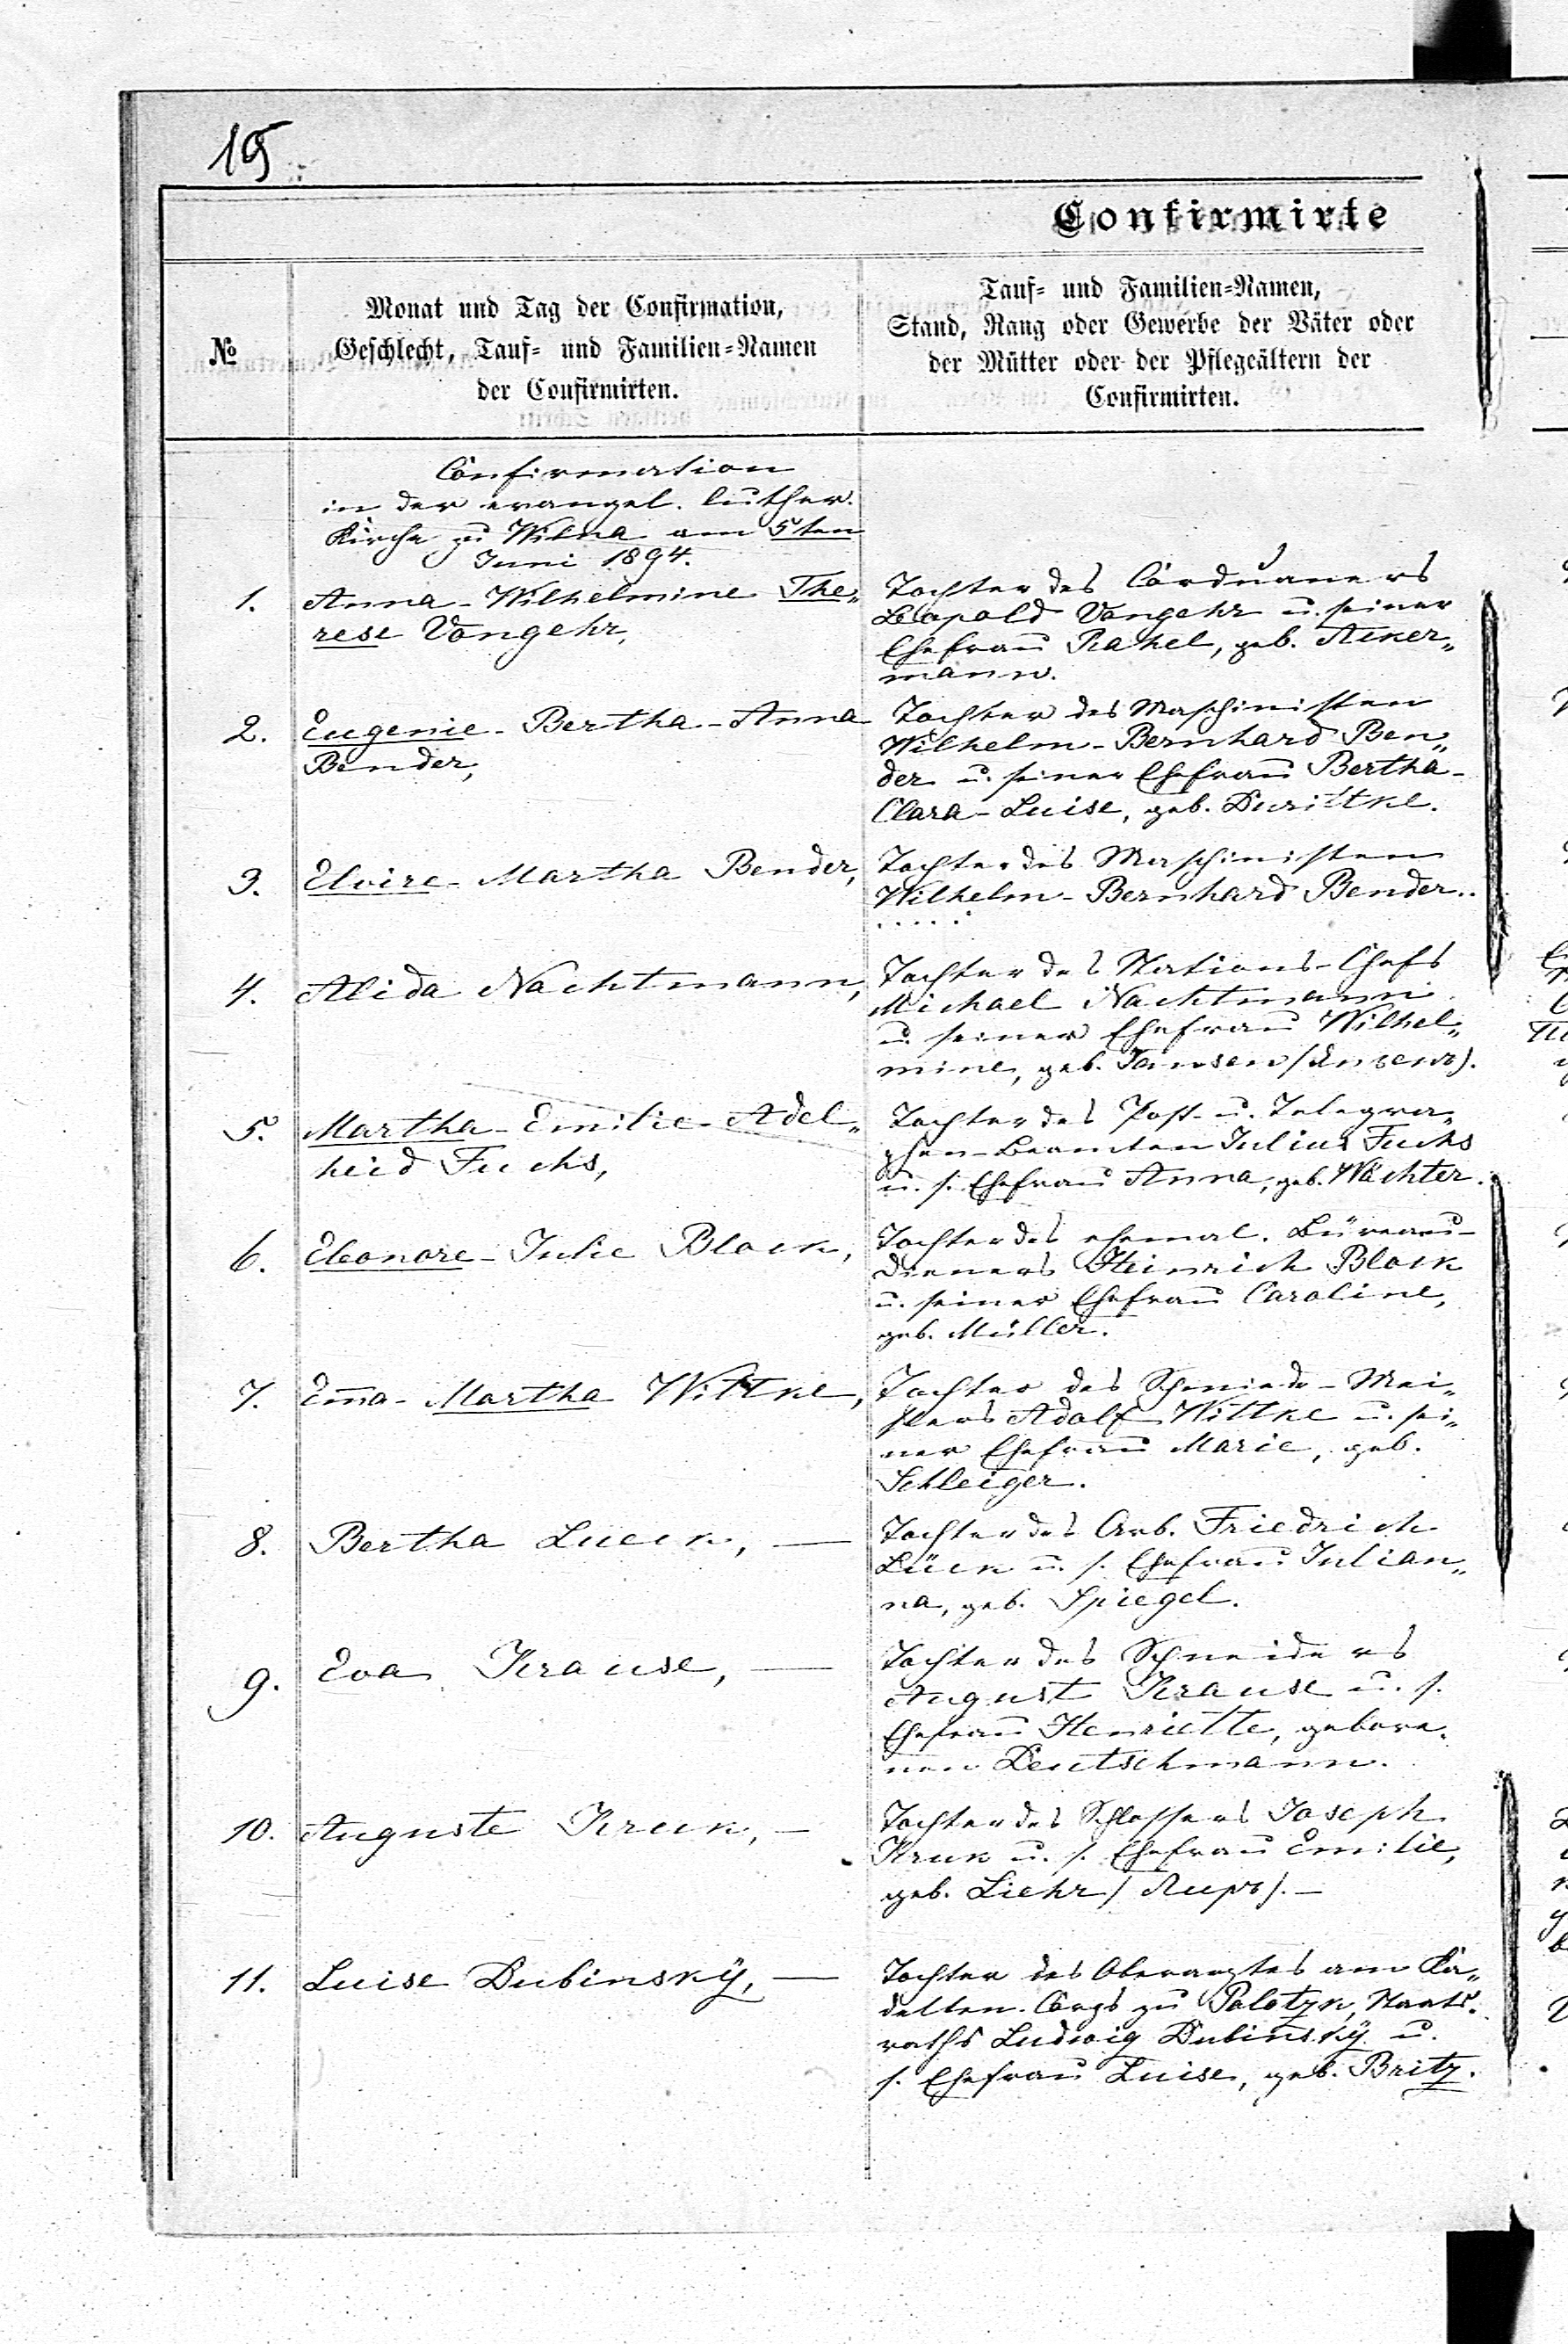 19
Confirmirte
№
Monat und Tag der Confirmation,
Geschlecht, Tauf- und Familien-Namen
der Confirmirten.
Tauf- und Familien-Namen,
Stand, Rang oder Gewerbe der Väter oder
der Mütter oder der Pflegeältern der
Confirmirten.
Confirmation
in der evangel. luther.
Kirche zu Wilna am 5ten
Juni 1894.
1.
Anna-Wilhelmine The„
rese Vongehr,
Tochter des Corduaners
Leopold Vongehr u. seiner
Ehefrau Rahel, geb. Acker„
mann.
2.
Eugenie-Bertha-Anna
Bender,
Tochter des Maschinisten
Wilhelm-Bernhard Ben„
der u. seiner Ehefrau Bertha-
Clara-Luise, geb. Durittke.
3.
Elvire-Martha Bender,
Tochter des Maschinisten
Wilhelm-Bernhard Bender..
.....
4.
Alida Nachtmann,
Tochter des Stations-Chefs
Michael Nachtmann
u. seiner Ehefrau Wilhel„
mine, geb. Jansen
5.
Martha-Emilie-Adel„
heid Fuchs,
Tochter des Post- u. Telegra„
phen-Beamten Julius Fuchs
u. s. Ehefrau Anna, geb. Wächter.
6.
Eleonore-Julie Block,
Tochter des ehemal. Büreau-
Dieners Heinrich Block
u. seiner Ehefrau Caroline,
geb. Müller.
7.
Em̄a-Martha Wittke,
Tochter des Schmiede-Mei„
sters Adolf Wittke u. sei„
ner Ehefrau Marie, geb.
Schleiger.
8.
Bertha Lueck, —
Tochter des Arb. Friedrich
Lück u. s. Ehefrau Julian„
na, geb. Spiegel.
9.
Eva Krause, —
Tochter des Schneiders
August Krause u. s.
Ehefrau Henriette, gebore„
nen Deutschmann.
10.
Auguste Kruk, —
Tochter des Schlossers Joseph
Kruk u. s. Ehefrau Emilie,
geb. Liehr
11.
Luise Dubinskÿ, —
Tochter des Oberarztes am Ka„
detten-Corps zu Polotzk, Staats-
raths Ludwig Dubinskÿ u.
s. Ehefrau Luise, geb. Britz.